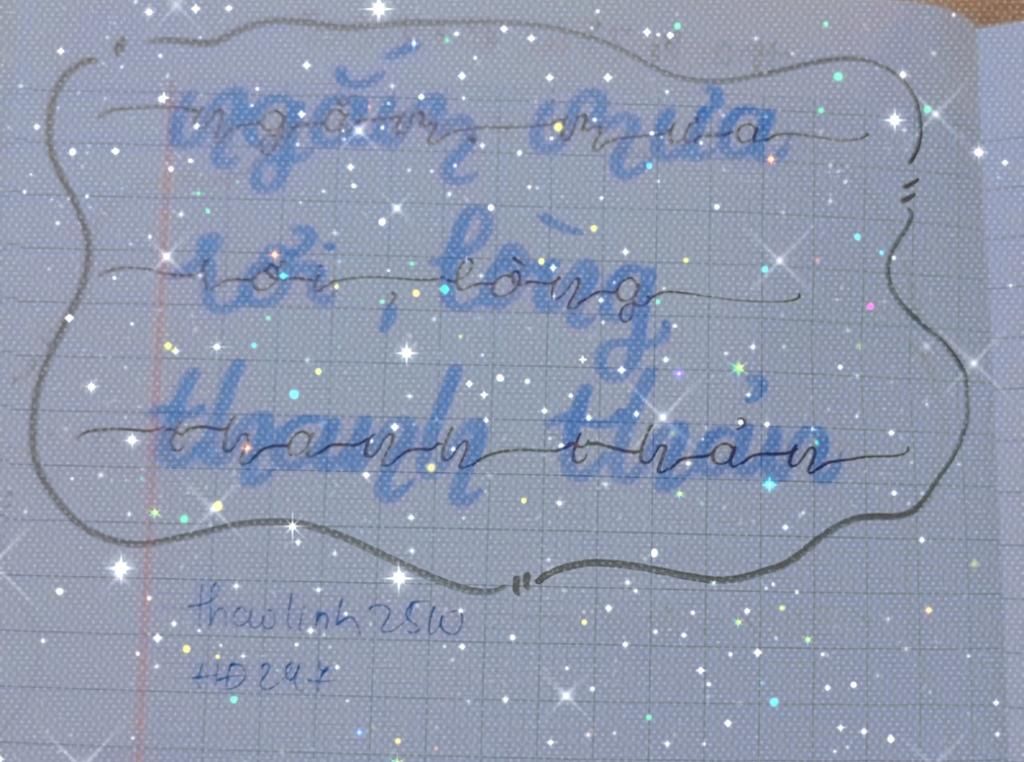 ngắm mưa
rơi, lòng
thanh thản
thaolinh2510
HD247